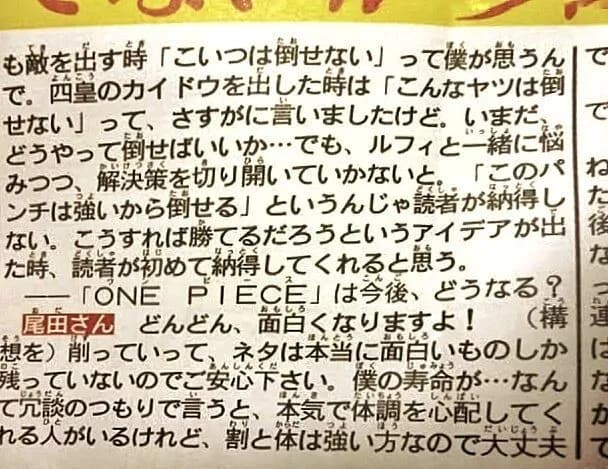 も敵を出す時「こいつは倒せない」って僕が思うん
で。四皇のカイドウを出した時は「こんなヤツは倒
せない」って、さすがに言いましたけど。いまだ、
どうやって倒せばいいか…でも、ルフィと一緒に悩
みつつ、解決策を切り開いていかないと。「このパ
ンチは強いから倒せる」というんじゃ読者が納得し
ない。こうすれば勝てるだろうというアイデアが出
た時、読者が初めて納得してくれると思う。
――「ONE PIECE」は今後、どうなる?
尾田さん どんどん、面白くなりますよ!(構
想を)削っていって、ネタは本当に面白いものしか
残っていないのでご安心下さい。僕の寿命が…なん
て冗談のつもりで言うと、本気で体調を心配してく
れる人がいるけれど、割と体は強い方なので大丈夫